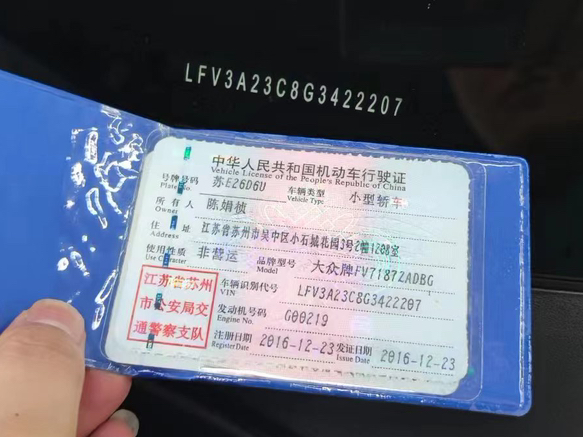 LFV3A23C8G3422207
中华人民共和国机动车行驶证
Vehicle License of the People's Republic of China
号牌号码 苏E26D6U 车辆类型 小型轿车
Plate No. Vehicle Type
所有人 陈娟桢
Owner
住址 江苏省苏州市吴中区小石城花园3号2幢1208室
Address
使用性质 非营运 品牌型号 大众牌FV7187ZADBG
Use Character Model
江苏省苏州
市公安局交
通警察支队
车辆识别代号 LFV3A23C8G3422207
VIN
发动机号码 G00219
Engine No.
注册日期 2016-12-23 发证日期 2016-12-23
Register Date Issue Date